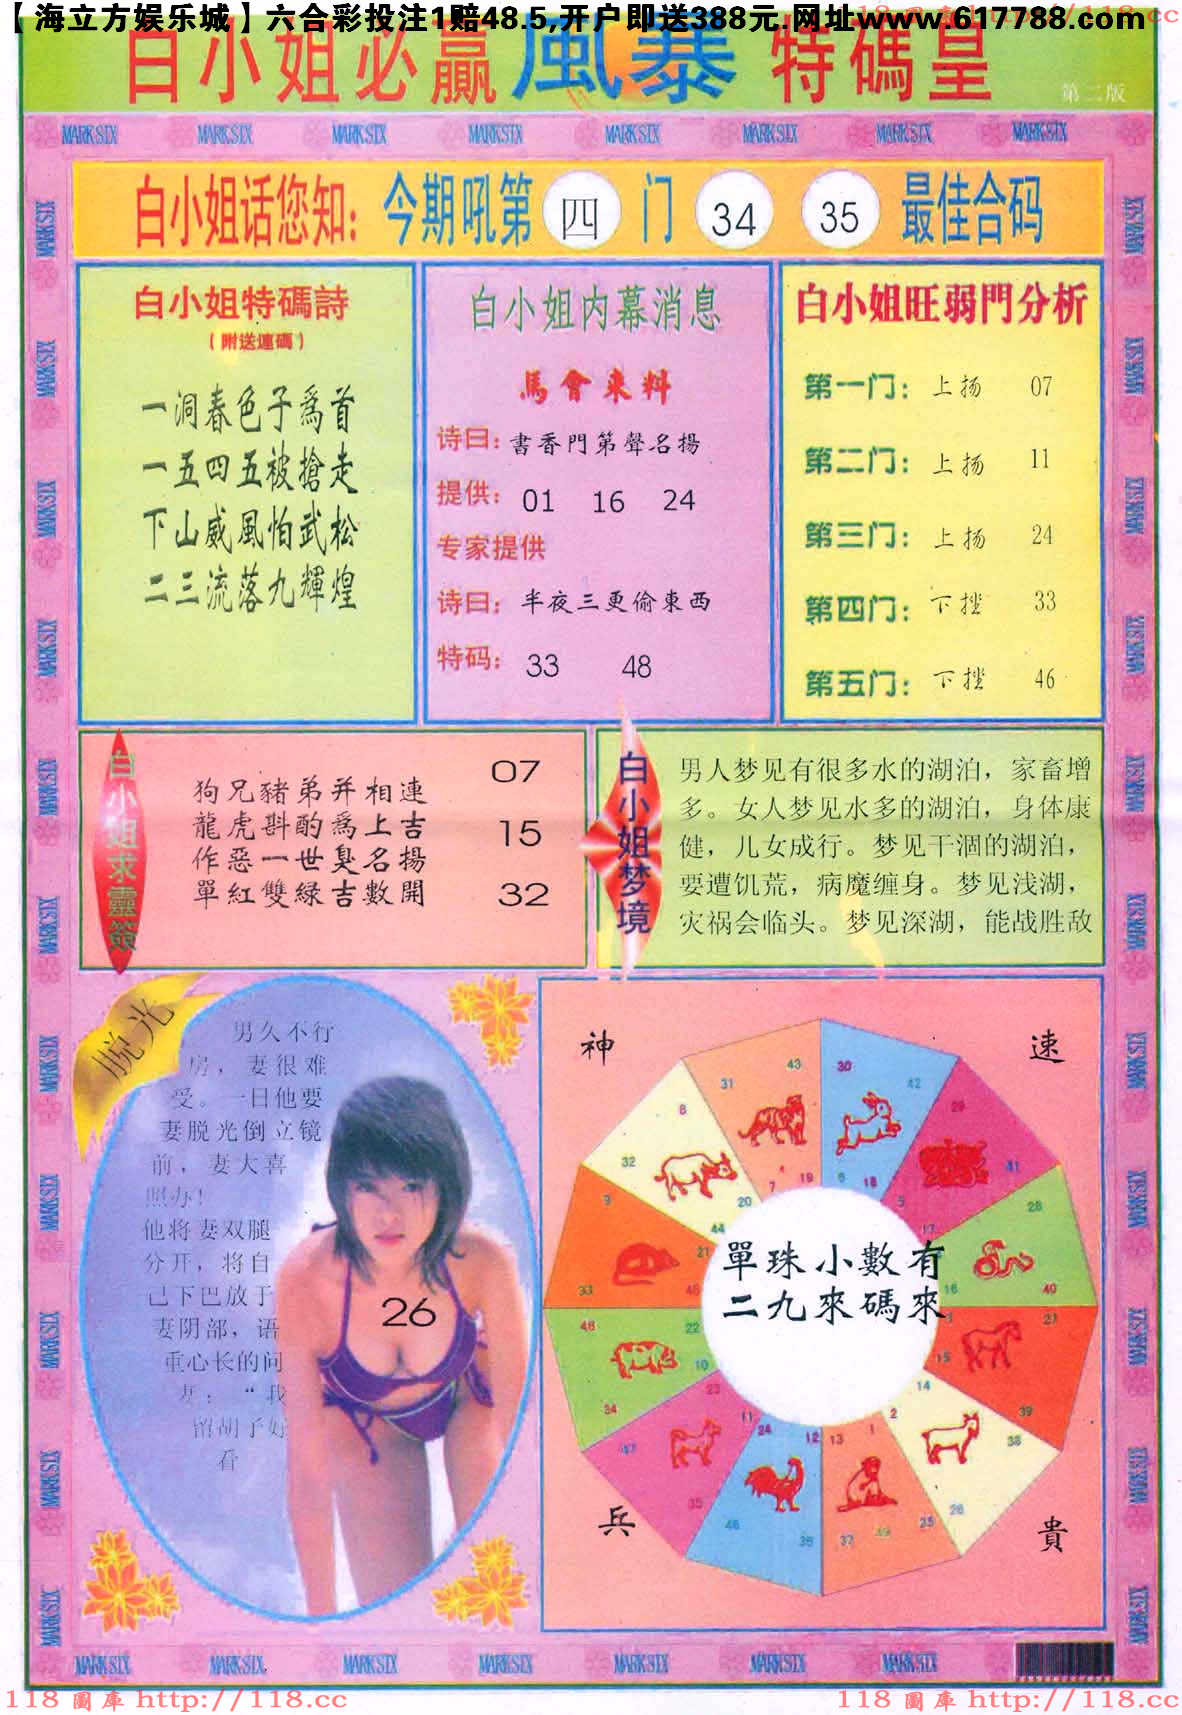 118 圖庫 http://118.cc
118 圖庫 http://118.cc
【海立方娱乐城】六合彩投注1赔48.5,开户即送388元,网址www.617788.com
白小姐必贏風暴特碼皇
第二版
MARK SIX MARK SIX MARK SIX MARK SIX MARK SIX MARK SIX MARK SIX MARK SIX
白小姐话您知：今期吼第 四 门 34 35 最佳合码
白小姐特碼詩
（附送連碼）
一洞春色子爲首
一五四五被搶走
下山威風怕武松
二三流落九輝煌
白小姐内幕消息
馬會來料
诗曰：書香門第聲名揚
提供：01 16 24
专家提供
诗曰：半夜三更偷東西
特码：33 48
白小姐旺弱門分析
第一门：上扬 07
第二门：上扬 11
第三门：上扬 24
第四门：下挫 33
第五门：下挫 46
白小姐求靈簽
狗兄豬弟并相連
龍虎斟酌爲上吉
作惡一世臭名揚
單紅雙緑吉數開
07
15
32
白小姐梦境
男人梦见有很多水的湖泊，家畜增
多。女人梦见水多的湖泊，身体康
健，儿女成行。梦见干涸的湖泊，
要遭饥荒，病魔缠身。梦见浅湖，
灾祸会临头。梦见深湖，能战胜敌
脱光
男久不行
房，妻很难
受。一日他要
妻脱光倒立镜
前，妻大喜
照办！
他将妻双腿
分开，将自
己下巴放于
妻阴部，语
重心长的问
妻：“我
留胡子好
看
26
神
速
兵
貴
單珠小數有
二九來碼來
43 31 19 7
30 42 6 18
29 41 5 17
28 40 16
27 39 15
38 26 14 2
1 13 25 37 49
12 24 36 48
11 23 35 47
10 22 34 46
9 21 33 45
8 20 32 44
MARK SIX MARK SIX MARK SIX MARK SIX MARK SIX MARK SIX MARK SIX
118 圖庫 http://118.cc
118 圖庫 http://118.cc